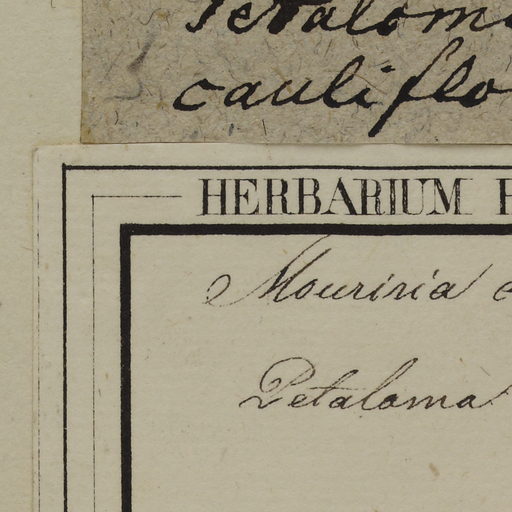 Petaloma
cauliflo
HERBARIUM
Mouriria
Petaloma